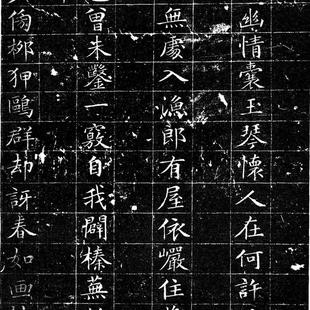 幽情囊玉琴懷人在何許
無處入漁郎有屋依巖住
曾未鑿一竅自我闢榛蕪
向柳狎鷗群却訝春如画